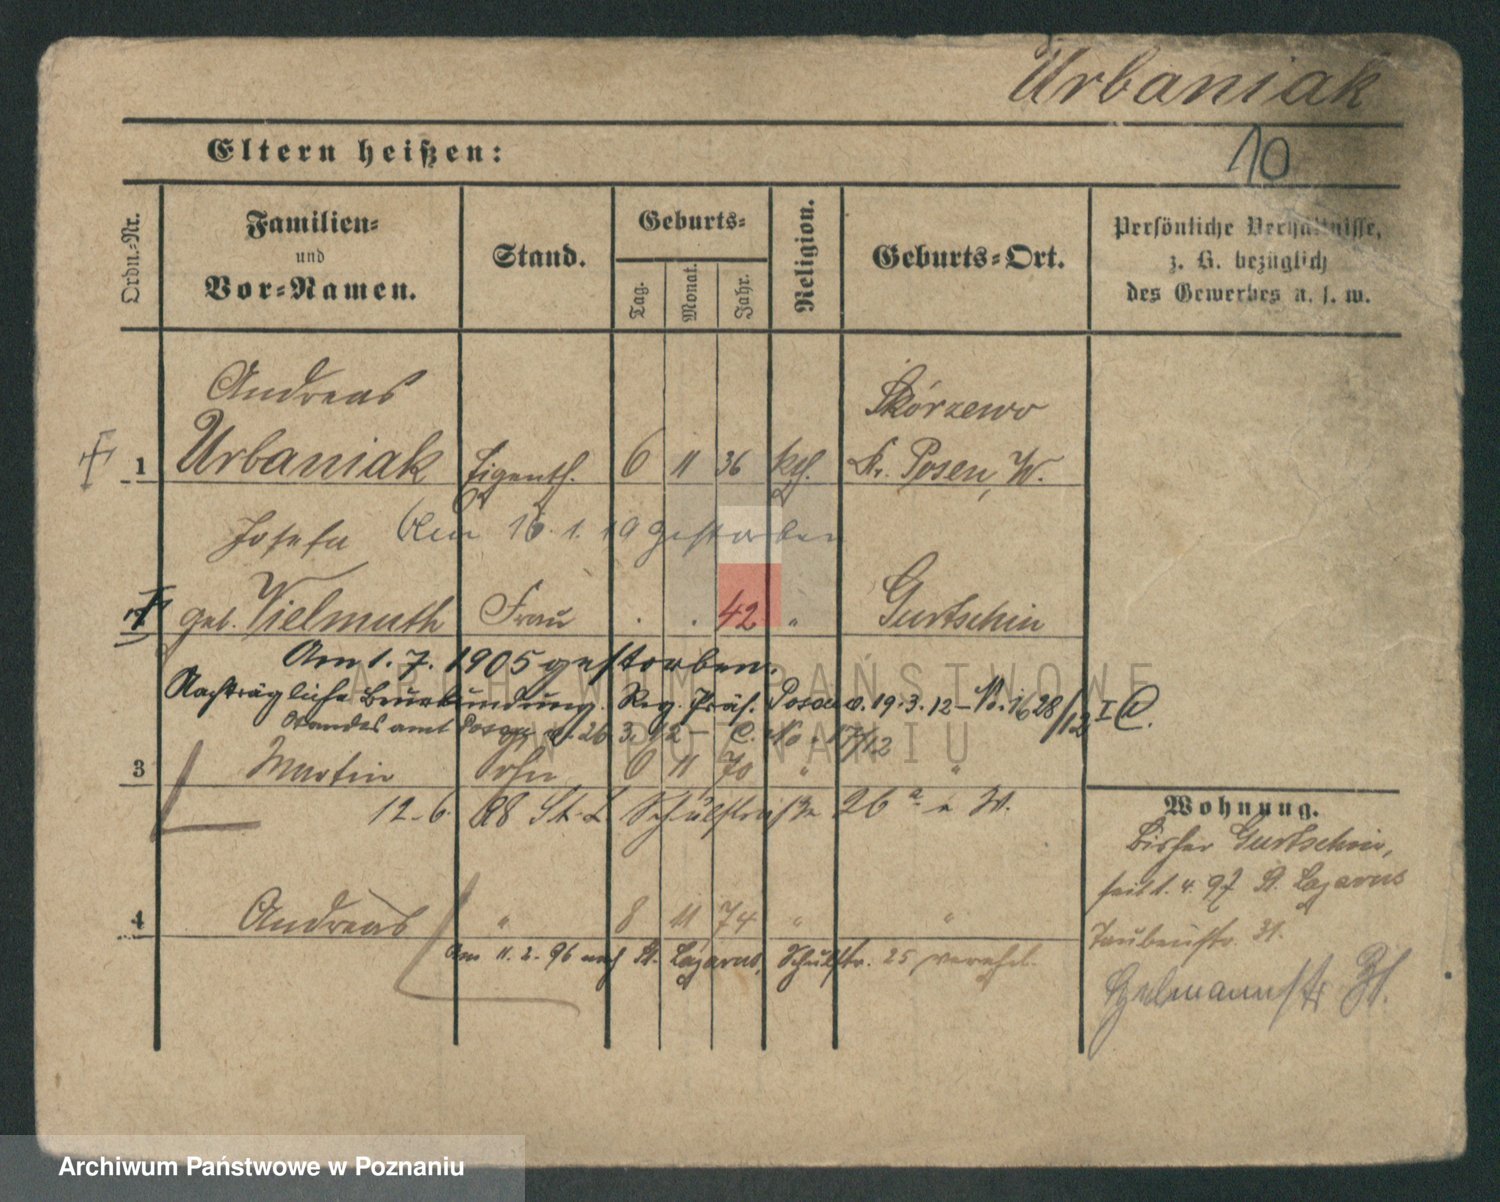 Urbaniak
10
Eltern heißen:
Ordn.-Nr.
Familien-
und
Vor-Namen.
Stand.
Geburts-
Tag.
Monat.
Jahr.
Religion.
Geburts-Ort.
Persönliche Verhältnisse,
z. B. bezüglich
des Gewerbes u. s. w.
Andreas Skórzewo
1 Urbaniak Eigenth. 6 11 36 kth. Kr. Posen, W.
Josefa Am 16. 1. 19 gestorben
geb. Vielmuth Frau . . 42 " Gurtschin
Am 1. 7. 1905 gestorben.
Nachträgliche Beurkundung. Reg. Präs. Posen v. 19. 3. 12 – No. 1628/12 I C.
Standesamt Posen v. 26. 3. 12 – C. No. 17/12
3 Martin Sohn 6 11 70 " "
12. 6. 98 St. L. Schulstraße 26a
4 Andreas " 8 11 74 " "
Am 11. 2. 96 nach St. Lazarus, Schulstr. 25 verzht.
Wohnung.
Bisher Gurtschin,
seit 1. 4. 97 St. Lazarus
Taubenstr. 31.
ARCHIWUM PAŃSTWOWE
W POZNANIU
Archiwum Państwowe w Poznaniu